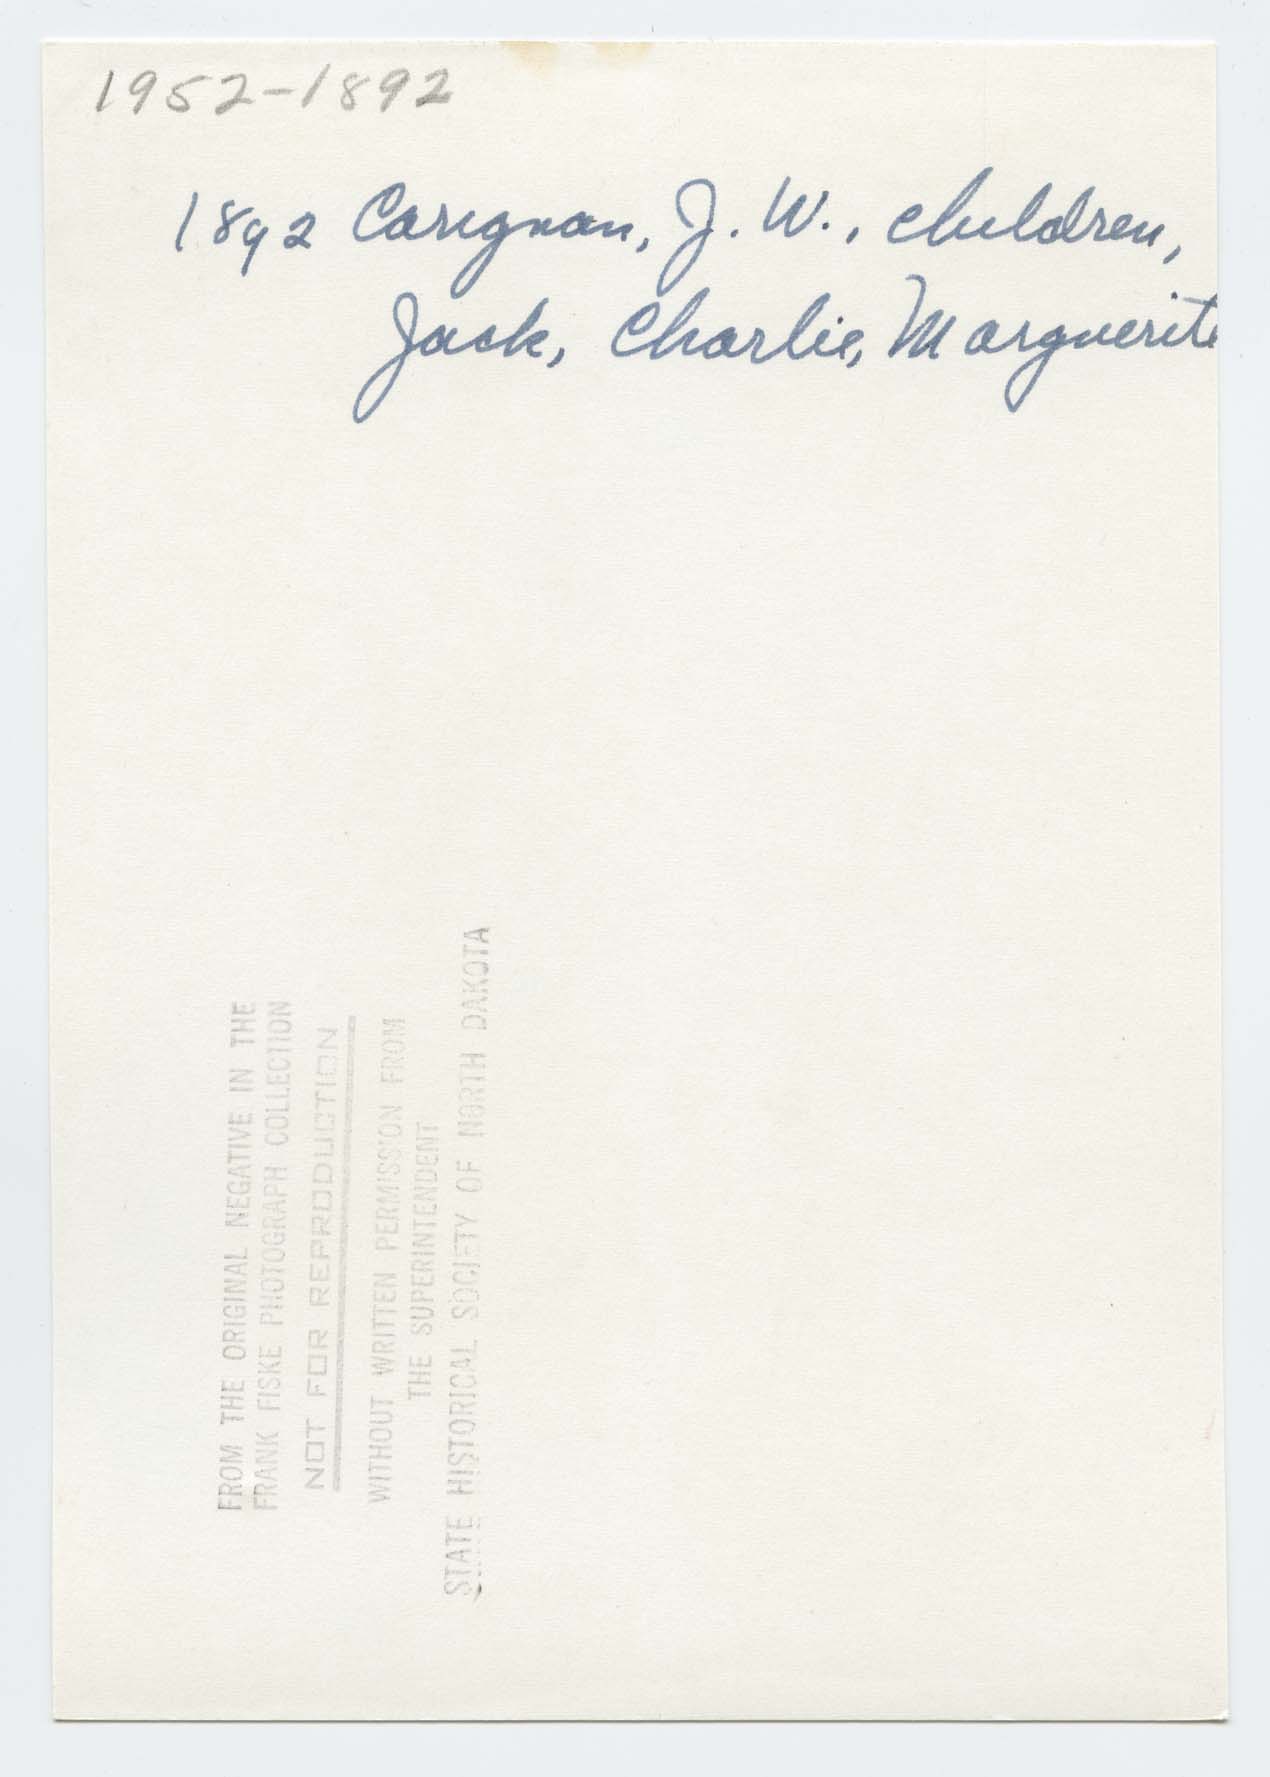 1952-1892
1892 Carignan, J. W., children,
Jack, Charlie, Marguerite
FROM THE ORIGINAL NEGATIVE IN THE
FRANK FISKE PHOTOGRAPH COLLECTION
NOT FOR REPRODUCTION
WITHOUT WRITTEN PERMISSION FROM
THE SUPERINTENDENT
STATE HISTORICAL SOCIETY OF NORTH DAKOTA